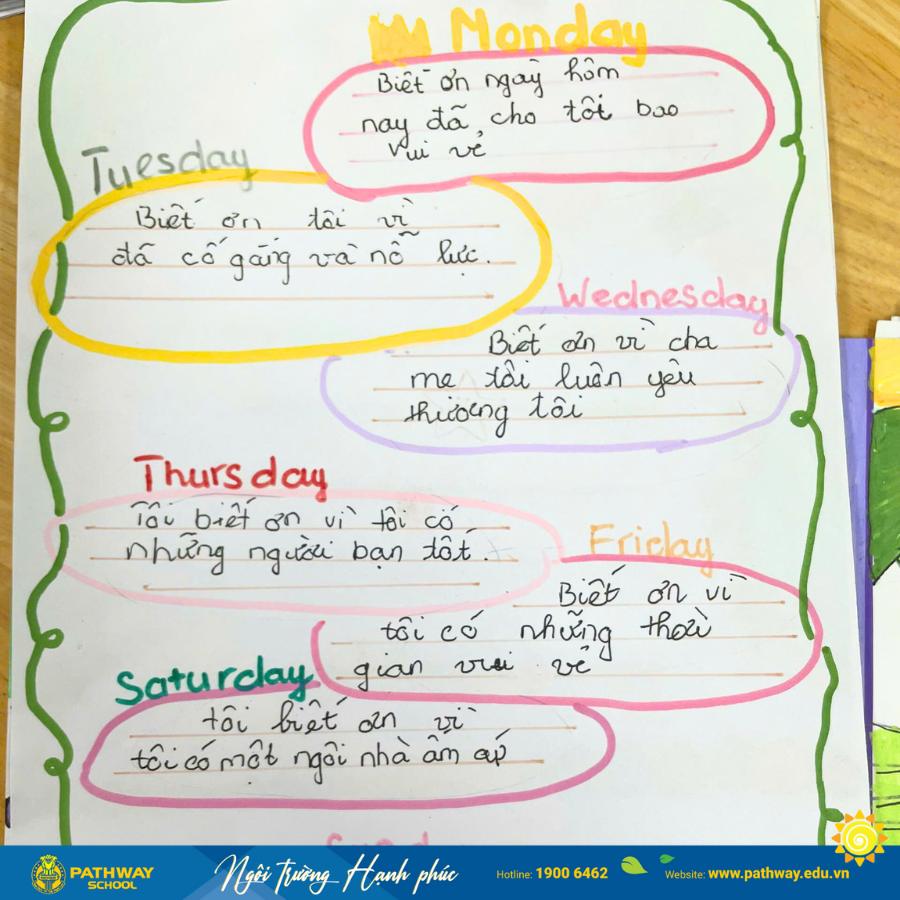 Monday
Biết ơn ngaỳ hôm
nay đã cho tôi bao
vui vẻ
Tuesday
Biết ơn tôi vì
đã cố gắng và nỗ lực.
Wednesday
Biết ơn vì cha
mẹ tôi luôn yêu
thương tôi
Thursday
Tôi biết ơn vì tôi có
những người bạn tốt.
Friday
Biết ơn vì
tôi có những thời
gian vui vẻ
Saturday
tôi biết ơn vì
tôi có một ngôi nhà âm áp
PATHWAY
SCHOOL
Ngôi Trường Hạnh phúc
Hotline: 1900 6462
Website: www.pathway.edu.vn